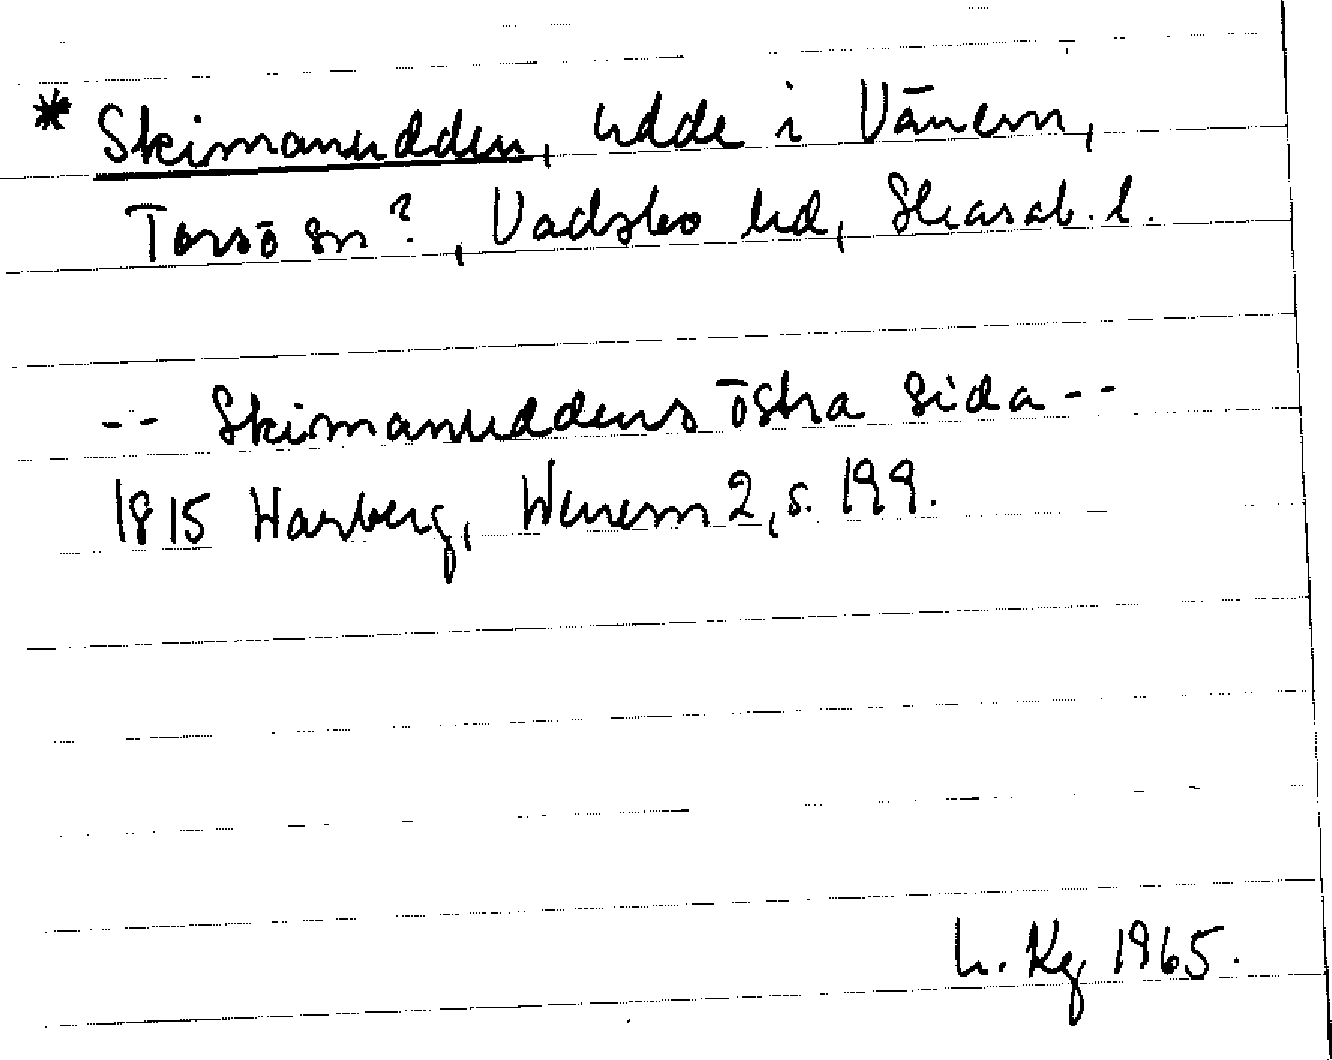 * Skimanudden, udde i Vänern,
Torsö sn?, Vadsbo hd, Skarab. l.
-- Skimanuddens östra sida --
1815 Warberg, Wenern 2, s. 199.
h. Kg 1965.